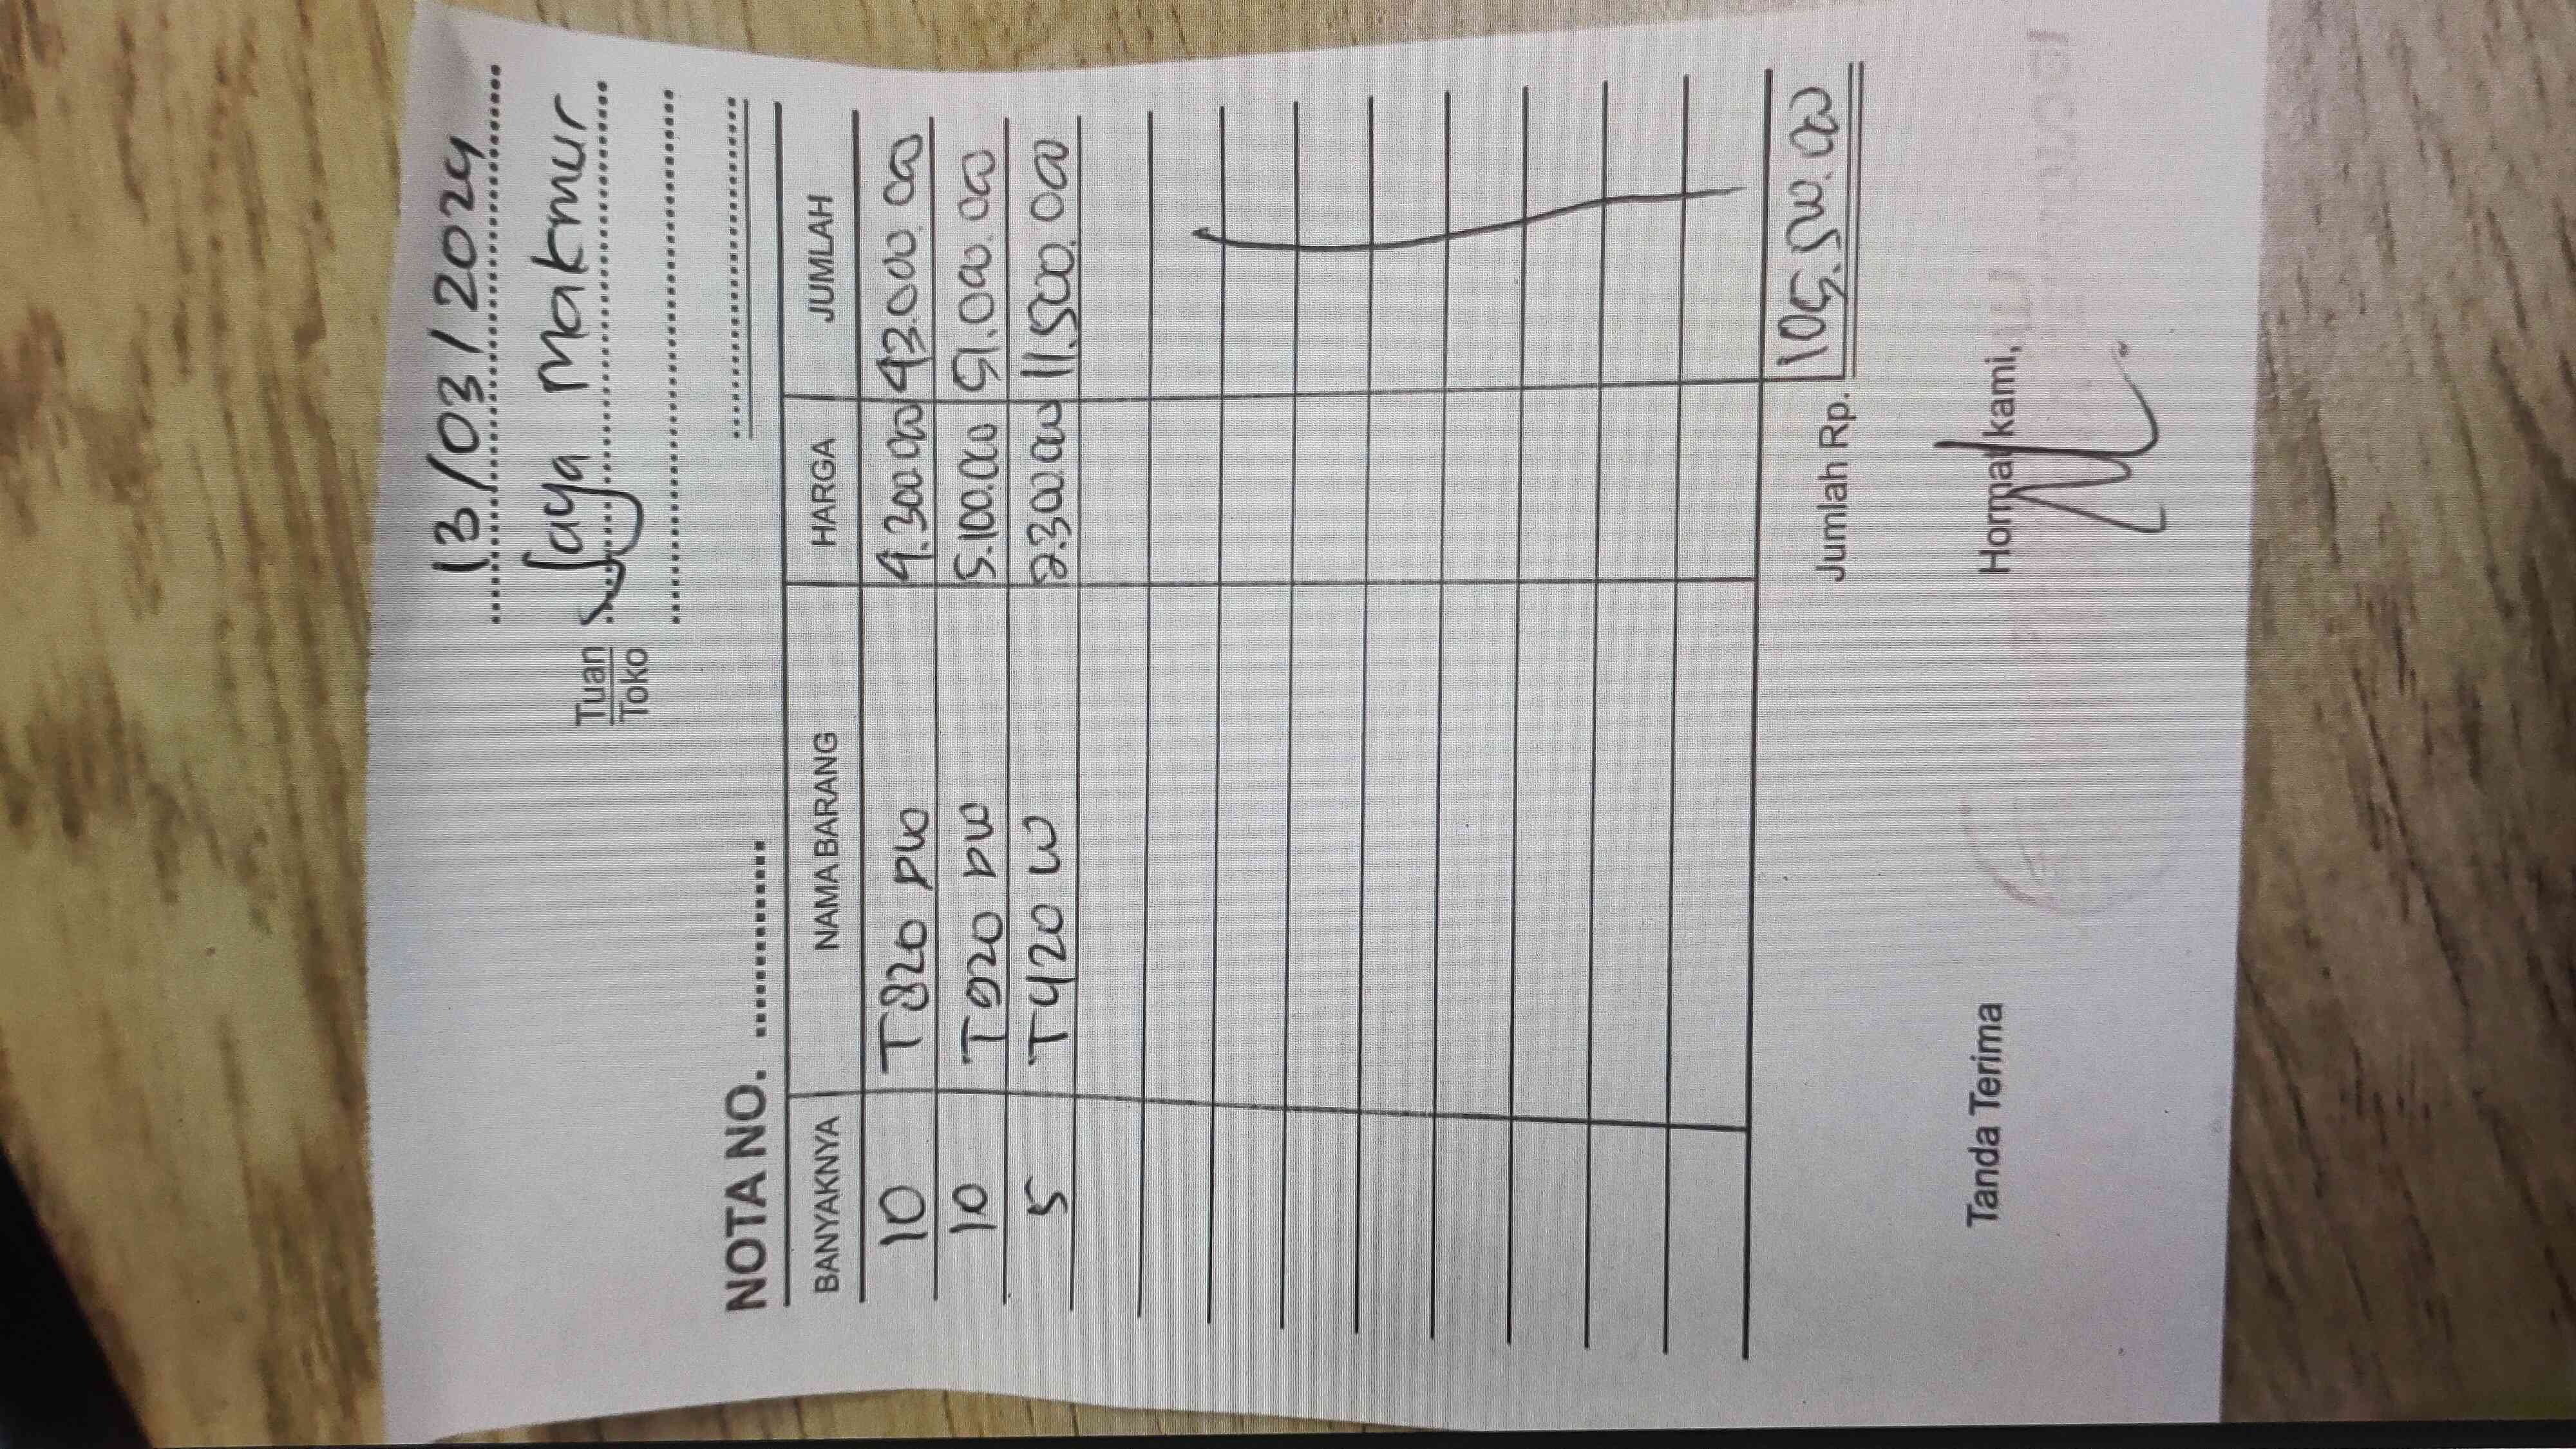 13/03/2024
Tuan Jaya Makmur
Toko
NOTA NO.
BANYAKNYA NAMA BARANG HARGA JUMLAH
10 T820 DW 4.300.000 43.000.000
10 T920 DW 5.100.000 51.000.000
5 T420 W 2.300.000 11.500.000
Jumlah Rp. 105.500.000
Tanda Terima Hormat kami,